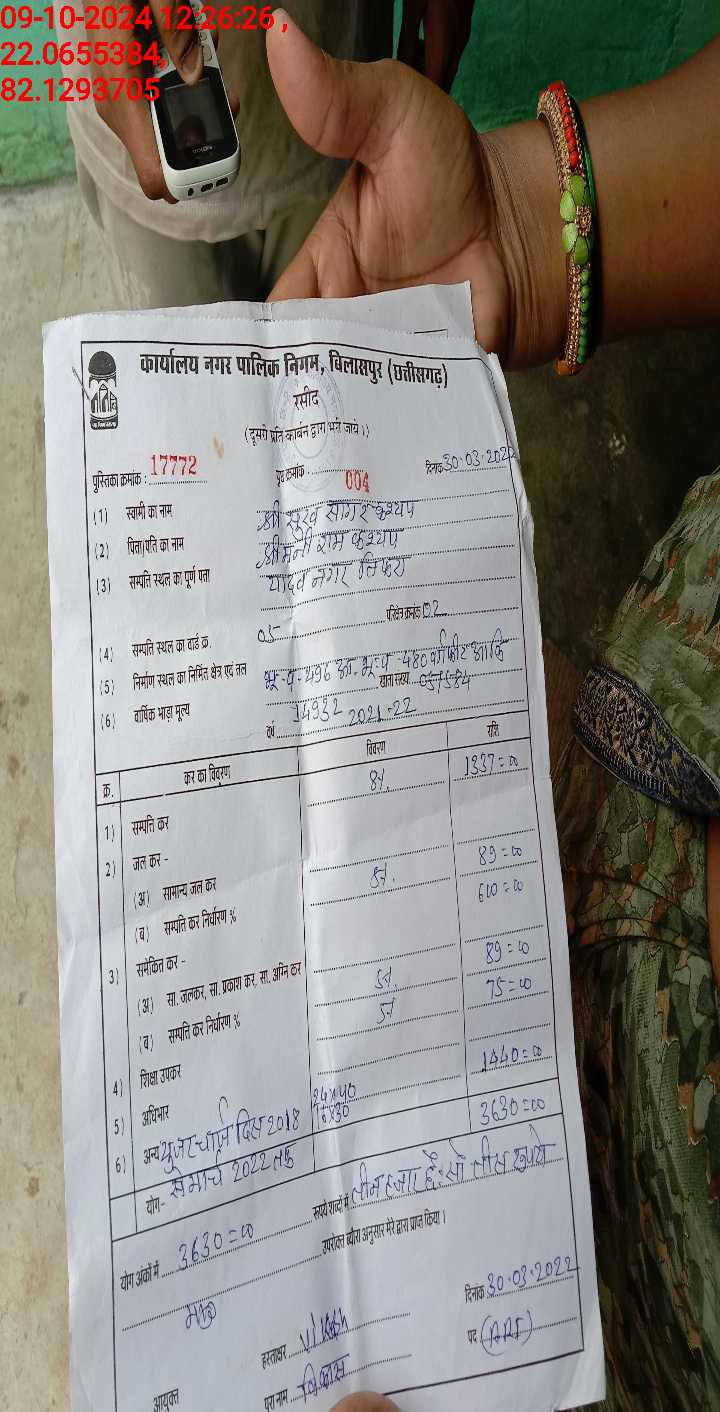 09-10-2024 12:26:26 ,
22.0655384,
82.1293705
कार्यालय नगर पालिक निगम, बिलासपुर (छत्तीसगढ़)
रसीद
(दूसरी प्रति कार्बन द्वारा भरी जाये।)
पुस्तिका क्रमांक : 17772 पृष्ठ क्रमांक 004 दिनांक 30.03.2022
(1) स्वामी का नाम श्री सुख सागर कश्यप
(2) पिता/पति का नाम श्री मनी राम कश्यप
(3) सम्पत्ति स्थल का पूर्ण पता यादव नगर तिफरा
परिक्षेत्र क्रमांक 02
(4) सम्पत्ति स्थल का वार्ड क्र. 05
(5) निर्माण स्थल का निर्मित क्षेत्र एवं तल भू-प-496 आ. भू-प-480 वर्गफीट
(6) वार्षिक भाड़ा मूल्य 14932 खाता संख्या
वर्ष 2021-22
क्र. कर का विवरण विवरण राशि
1) सम्पत्ति कर 8%. 1337=00
2) जल कर -
(अ) सामान्य जल कर 89=00
(ब) सम्पत्ति कर निर्धारण % 600=00
3) समेकित कर -
(अ) सा. जलकर, सा. प्रकाश कर, सा. अग्नि कर 89=00
(ब) सम्पत्ति कर निर्धारण % 75=00
4) शिक्षा उपकर
5) अधिभार 24x40 1440=00
6) अन्य यूजर चार्ज दिस 2018 16x30
से मार्च 2022 तक 3630=00
योग-
योग अंकों में 3630=00 रूपये शब्दों में तीन हजार छै: सौ तीस रूपये
उपरोक्त ब्यौरा अनुसार मेरे द्वारा प्राप्त किया।
दिनांक 30.03.2022
हस्ताक्षर Vikash पद (ARI)
आयुक्त पूरा नाम विकास